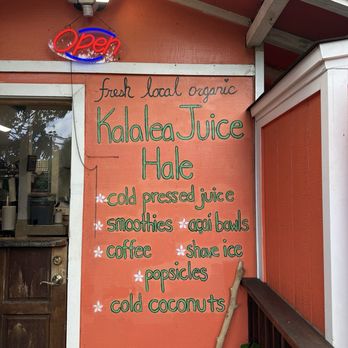 Open
fresh local organic
Kalalea Juice
Hale
cold pressed juice
smoothies açaí bowls
coffee shave ice
popsicles
cold coconuts